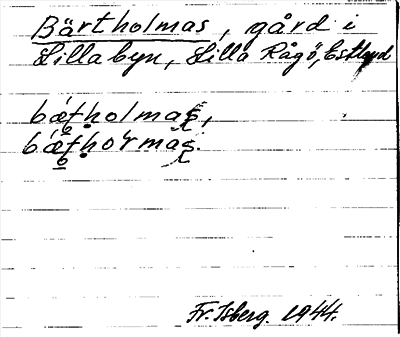 Bärtholmas, gård i
Lillabyn, Lilla Rågö, Estland
bǽtholmas,
bǽthormas.
Fr. Isberg. 1944.